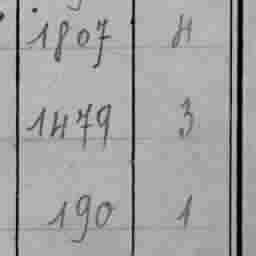 1807 4
1479 3
190 1